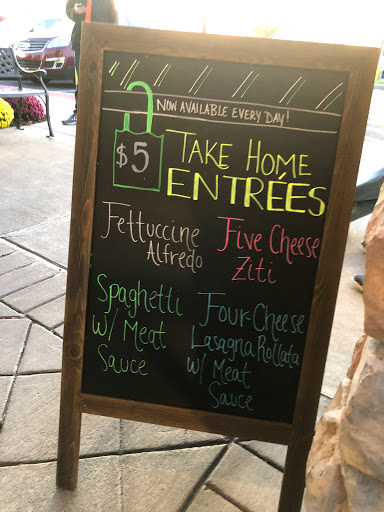 NOW AVAILABLE EVERY DAY!
$5
TAKE HOME
ENTRÉES
Fettuccine
Alfredo
Five Cheese
Ziti
Spaghetti
w/ Meat
Sauce
Four-Cheese
Lasagna Rollata
w/ Meat
Sauce